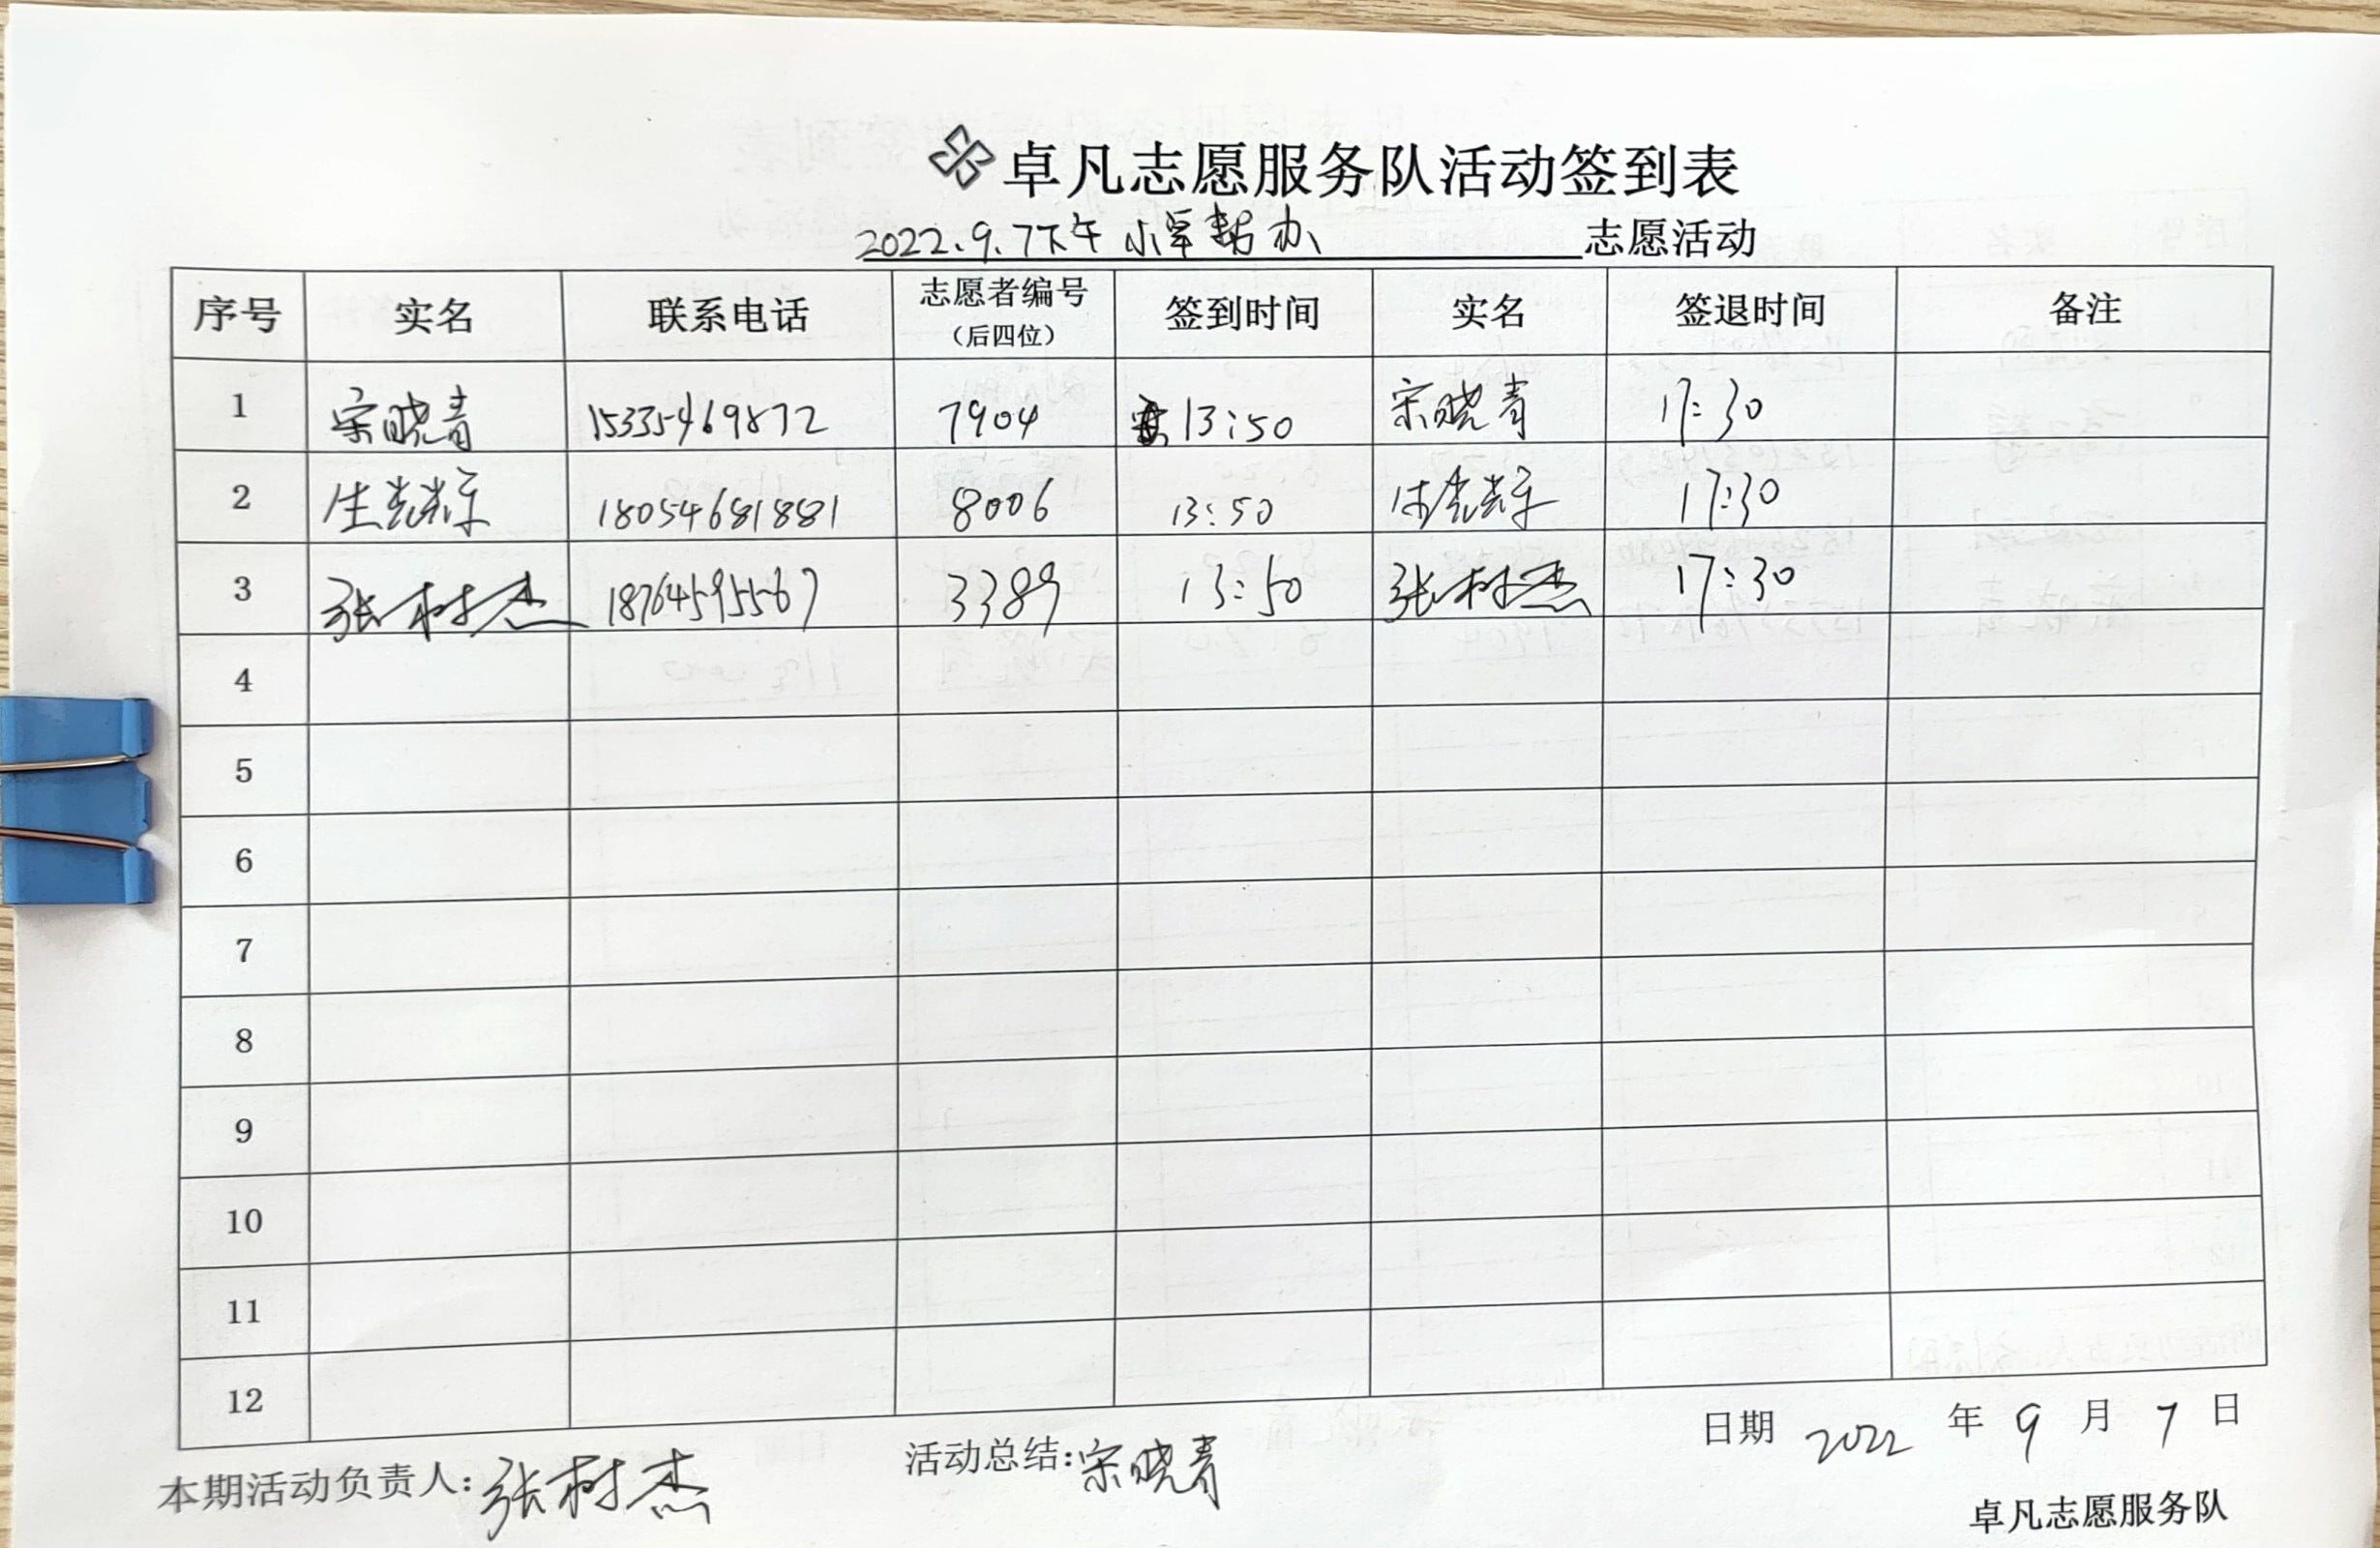 卓凡志愿服务队活动签到表
2022.9.7下午 小军帮办 志愿活动
序号 实名 联系电话 志愿者编号（后四位） 签到时间 实名 签退时间 备注
1 宋晓青 15335469872 7904 13:50 宋晓青 17:30
2 18054681881 8006 13:50 17:30
3 张树杰 18764595567 3389 13:50 张树杰 17:30
4
5
6
7
8
9
10
11
12
日期 2022 年 9 月 7 日
本期活动负责人: 张树杰 活动总结: 宋晓青
卓凡志愿服务队